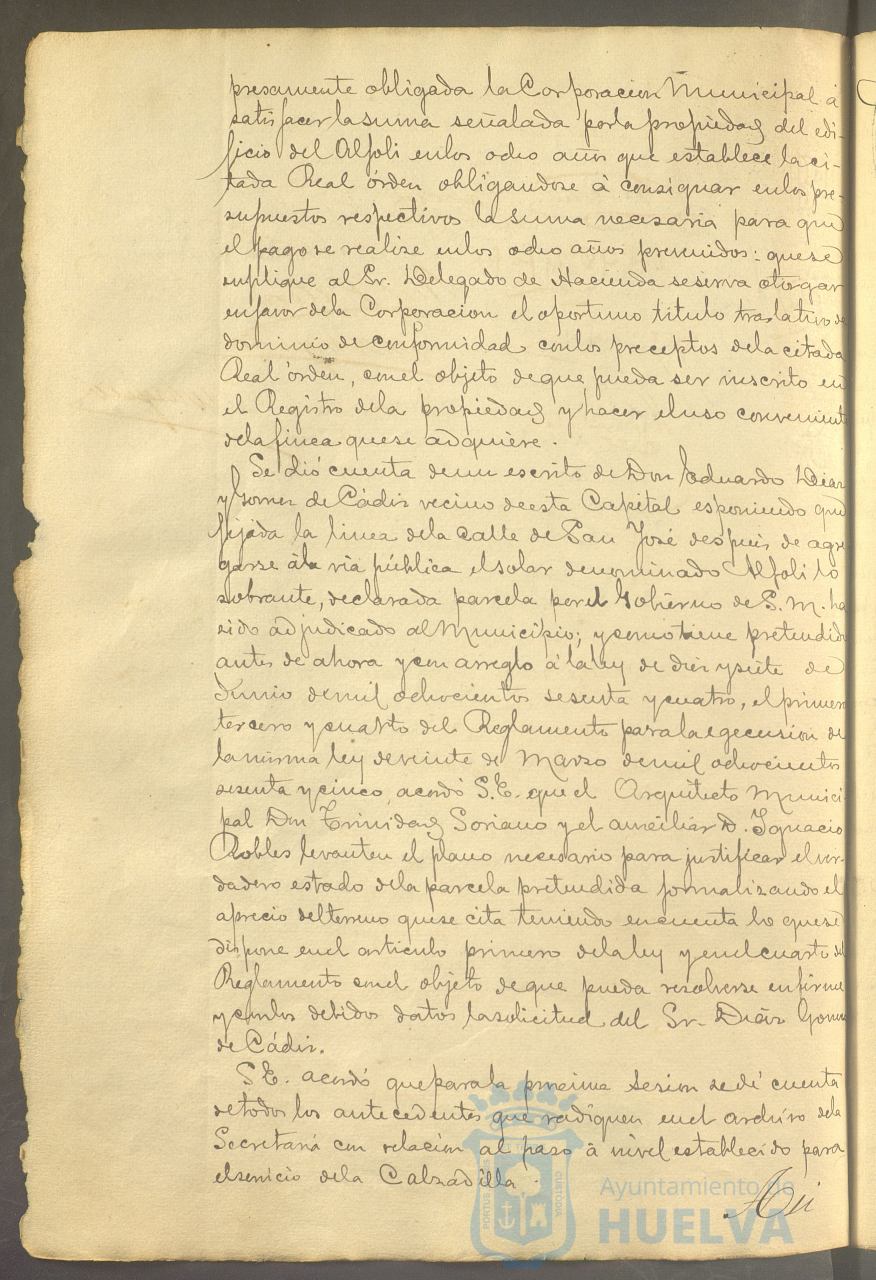 presamente obligada la Corporacion Municipal á
satisfacer la suma señalada por la propiedad del edi-
ficio del Alfoli en los ocho años que establece la ci-
tada Real órden obligandose á consignar en los pre-
supuestos respectivos la suma necesaria para que
el pago se realize en los ocho años prevenidos: que se
suplique al Sr. Delegado de Hacienda se sirva otorgar
en favor de la Corporacion el oportuno titulo traslativo de
dominio de conformidad con los preceptos de la citada
Real órden, con el objeto de que pueda ser inscrito en
el Registro de la propiedad y hacer el uso conveniente
de la finca que se adquiere.
Se dió cuenta de un escrito de Don Eduardo Diaz
y Gomez de Cádiz vecino de esta Capital esponiendo que
fijada la linea de la calle de San José despues de agre
garse á la via pública el solar denominado Alfoli lo
sobrante, declarada parcela por el Gobierno de S. M. ha
sido adjudicado al Municipio; y como tiene pretendido
antes de ahora y con arreglo á la ley de diez y siete de
Junio de mil ochocientos sesenta y cuatro, el primero
tercero y cuarto del Reglamento para la egecusion de
la misma ley de veinte de Marzo de mil ochocientos
sesenta y cinco, acordó S.E. que el Arquitecto Munici
pal Don Trinidad Soriano y el auxiliar D. Ignacio
Robles levanten el plano necesario para justificar el ver-
dadero estado de la parcela pretendida formalizando el
aprecio del terreno que se cita teniendo en cuenta lo que se
dispone en el articulo primero de la ley y en el cuarto del
Reglamento con el objeto de que pueda resolverse en firme
y con los debidos datos la solicitud del Sr. Diaz Gomez
de Cádiz.
S.E. acordó que para la procsima sesion se dé cuenta
de todos los antecedentes que radiquen en el archivo de la
Secretaria con relacion al paso á nivel establecido para
el servicio de la Calzadilla.
PORTUS CUSTODIA
Ayuntamiento de
HUELVA